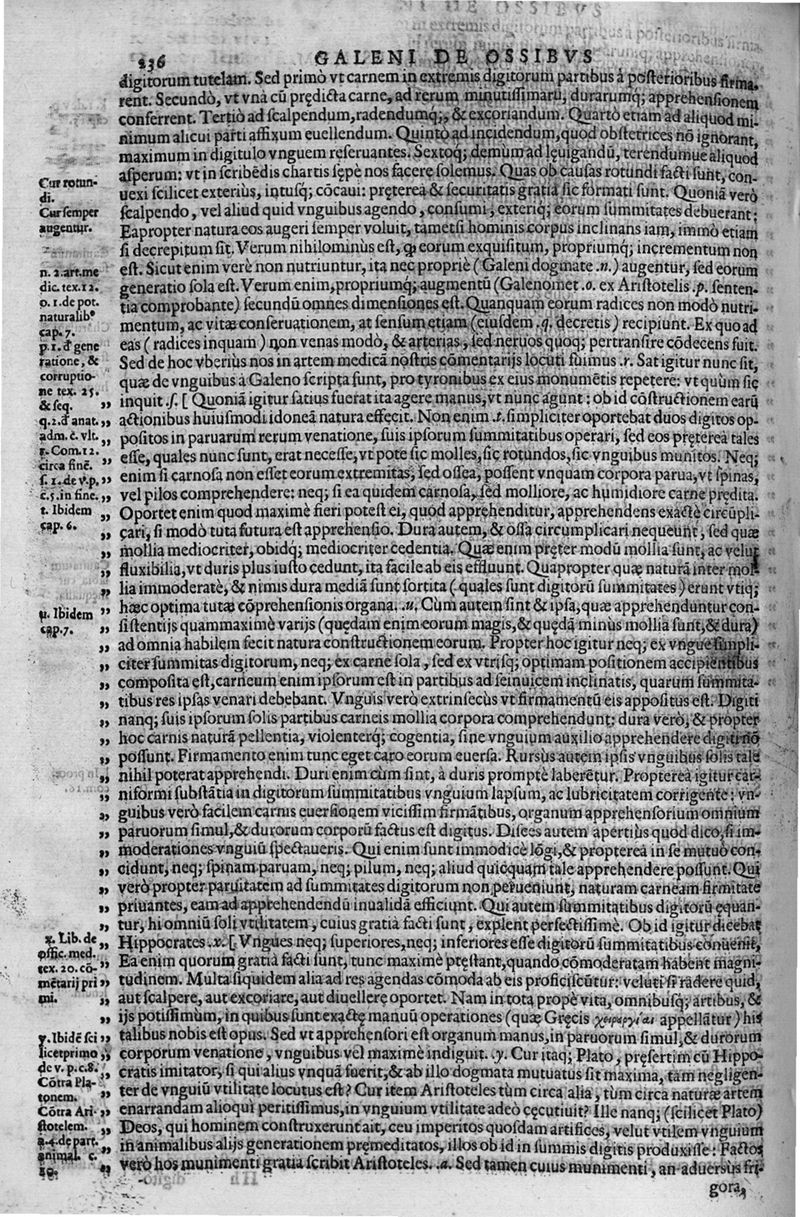 236
GALENI DE OSSIBVS
digitorum tutelam. Sed primò vt carnem in extremis digitorum partibus à posterioribus firma-
rent. Secundò, vt vnà cũ prędicta carne, ad rerum minutissimarũ, durarumq́; apprehensionem
conferrent. Tertiò ad scalpendum, radendumq́;, & excoriandum. Quartò etiam ad aliquod mi-
nimum alicui parti affixum euellendum. Quintò ad incidendum, quod obstetrices nõ ignorant,
maximum in digitulo vnguem reseruantes. Sextoq́; demum ad lęuigandũ, terendumue aliquod
asperum: vt in scribẽdis chartis sępè nos facere solemus. Quas ob causas rotundi facti sunt, con-
uexi scilicet exteriùs, intusq́; cõcaui: pręterea & securitatis gratia sic formati sunt. Quoniã verò
scalpendo, vel aliud quid vnguibus agendo, consumi, exteriq́; eorum summitates debuerant:
Eapropter natura eos augeri semper voluit, tametsi hominis corpus inclinans iam, immò etiam
si decrepitum sit. Verum nihilominùs est, ꝙ eorum exquisitum, propriumq́; incrementum non
est. Sicut enim verè non nutriuntur, ita nec propriè (Galeni dogmate .n.) augentur, sed eorum
generatio sola est. Verum enim, propriumq́; augmentũ (Galenomet .o. ex Aristotelis .p. senten-
tia comprobante) secundũ omnes dimensiones est. Quanquam eorum radices non modò nutri-
mentum, ac vitæ conseruationem, at sensum etiam (eiusdem .q. decretis) recipiunt. Ex quo ad
eas (radices inquam) non venas modò, & arterias, sed neruos quoq; pertransire cõdecens fuit.
Sed de hoc vberiùs nos in artem medicã nostris cõmentarijs locuti fuimus .r. Sat igitur nunc sit,
quæ de vnguibus à Galeno scripta sunt, pro tyronibus ex eius monumẽtis repetere: vt quùm sic
inquit .s. [ Quoniã igitur satius fuerat ita agere manus, vt nunc agunt: ob id cõstructionem earũ
actionibus huiusmodi idoneã natura effecit. Non enim .t. simpliciter oportebat duos digitos op-
positos in paruarum rerum venatione, suis ipsorum summitatibus operari, sed eos pręterea tales
esse, quales nunc sunt, erat necesse, vt pote sic molles, sic rotundos, sic vnguibus munitos. Neq;
enim si carnosa non esset eorum extremitas, sed ossea, possent vnquam corpora parua, vt spinas,
vel pilos comprehendere: neq; si ea quidem carnosa, sed molliore, ac humidiore carne prędita.
Oportet enim quod maximè fieri potest ei, quod apprẹhenditur, apprehendens exactè circũpli-
cari, si modò tuta futura est apprehensio. Dura autem, & ossa circumplicari nequeunt, sed quæ
mollia mediocriter, obidq́; mediocriter cedentia. Quæ enim pręter modũ mollia sunt, ac velut
fluxibilia, vt duris plus iusto cedunt, ita facile ab eis effluunt. Quapropter quæ naturã inter mol
lia immoderatè, & nimis dura mediã sunt sortita (quales sunt digitorũ summitates) erunt vtiq;
hæc optima tutæ cõprehensionis organa. .u. Cùm autem sint & ipsa, quæ apprehenduntur con-
sistentijs quammaximè varijs (quędam enim eorum magis, & quędã minùs mollia sunt, & dura)
ad omnia habilem fecit natura constructionem eorum. Propter hoc igitur neq; ex vngue simpli-
citer summitas digitorum, neq; ex carne sola, sed ex vtrisq; optimam positionem accipientibus
composita est, carneum enim ipsorum est in partibus ad seinuicem inclinatis, quarum summita-
tibus res ipsas venari debebant. Vnguis verò extrinsecùs vt firmamentũ eis appositus est. Digiti
nanq; suis ipsorum solis partibus carneis mollia corpora comprehendunt: dura verò, & propter
hoc carnis naturã pellentia, violenterq́; cogentia, sine vnguium auxilio apprehendere digiti nõ
possunt. Firmamento enim tunc eget caro eorum euersa. Rursùs autem ipsis vnguibus solis tale
nihil poterat apprehendi. Duri enim cùm sint, à duris promptè laberẽtur. Propterea igitur car-
niformi substãtia in digitorum summitatibus vnguium lapsum, ac lubricitatem corrigente: vn-
guibus verò facilem carnis euersionem vicissim firmãtibus, organum apprehensorium omnium
paruorum simul, & durorum corporũ factus est digitus. Disces autem apertiùs quod dico, si im-
moderationes vnguiũ spectaueris. Qui enim sunt immodicè lõgi, & propterea in se mutuò con-
cidunt, neq; spinam paruam, neq; pilum, neq; aliud quicquam tale apprehendere possunt. Qui
verò propter paruitatem ad summitates digitorum non perueniunt, naturam carneam firmitate
priuantes, eam ad apprehendendũ inualidã efficiunt. Qui autem summitatibus digitorũ equan-
tur, hi omniũ soli vtilitatem, cuius gratia facti sunt, explent perfectissimè. Ob id igitur dicebat
Hippocrates .x. [ Vngues neq; superiores, neq; inferiores esse digitorũ summitatibus conuenit,
Ea enim quorum gratia facti sunt, tunc maximè pręstant, quando cõmoderatam habent magni-
tudinem. Multa siquidem alia ad res agendas cõmoda ab eis proficiscũtur: veluti si radere quid,
aut scalpere, aut excoriare, aut diuellere oportet. Nam in tota propè vita, omnibusq́; artibus, &
ijs potissimum, in quibus sunt exactę manuũ operationes (quæ Gręcis χειρεργίαι appellãtur) his
talibus nobis est opus. Sed vt apprehensori est organum manus, in paruorum simul, & durorum
corporum venatione, vnguibus vel maximè indiguit. .y. Cur itaq; Plato, pręsertim cũ Hippo-
cratis imitator, si qui alius vnquã fuerit, & ab illo dogmata mutuatus sit maxima, tam negligen-
ter de vnguiũ vtilitate locutus est? Cur item Aristoteles tùm circa alia, tùm circa naturæ artem
enarrandam alioqui peritissimus, in vnguium vtilitate adeò cęcutiuit? Ille nanq; (scilicet Plato)
Deos, qui hominem construxerunt ait, ceu imperitos quosdam artifices, velut vtilem vnguium
in animalibus alijs generationem pręmeditatos, illos ob id in summis digitis produxisse: Factos
verò hos munimenti gratia scribit Aristoteles. .a. Sed tamen cuius munimenti, an aduersus fri-
gora,
Cur rotun-
di.
Cur semper
augentur.
n. 2. art. me
dic. tex. 12.
o. 1. de pot.
naturalibꝰ
cap. 7.
p. 1. đ gene
ratione, &
corruptio-
ne tex. 25.
& seq.
q. 2. đ anat.
adm. c. vlt.
r. Com. 12.
circa finẽ.
s. 1. de v. p.
c. 5. in fine.
t. Ibidem
cap. 6.
u. Ibidem
cap. 7.
x. Lib. de
offic. med.
tex. 20. cõ-
mẽtarij pri
mi.
y. Ibidẽ sci
licet primo
de v. p. c. 8.
Cõtra Pla-
tonem.
Cõtra Ari-
stotelem.
a. 4. de part.
animal. c.
10.